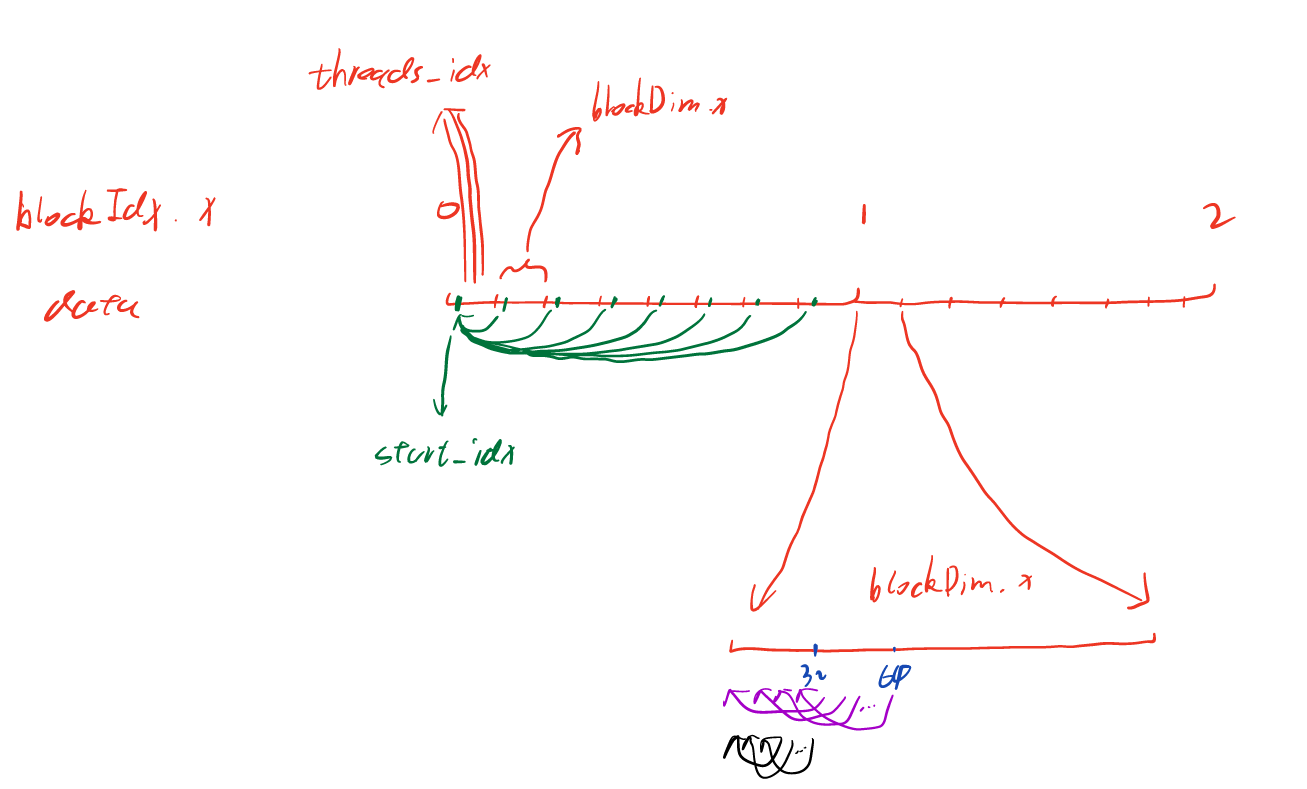 threads_idx
blockDim.x
blockIdx.x 0 1 2
data
start_idx
blockDim.x
32 64
...
...